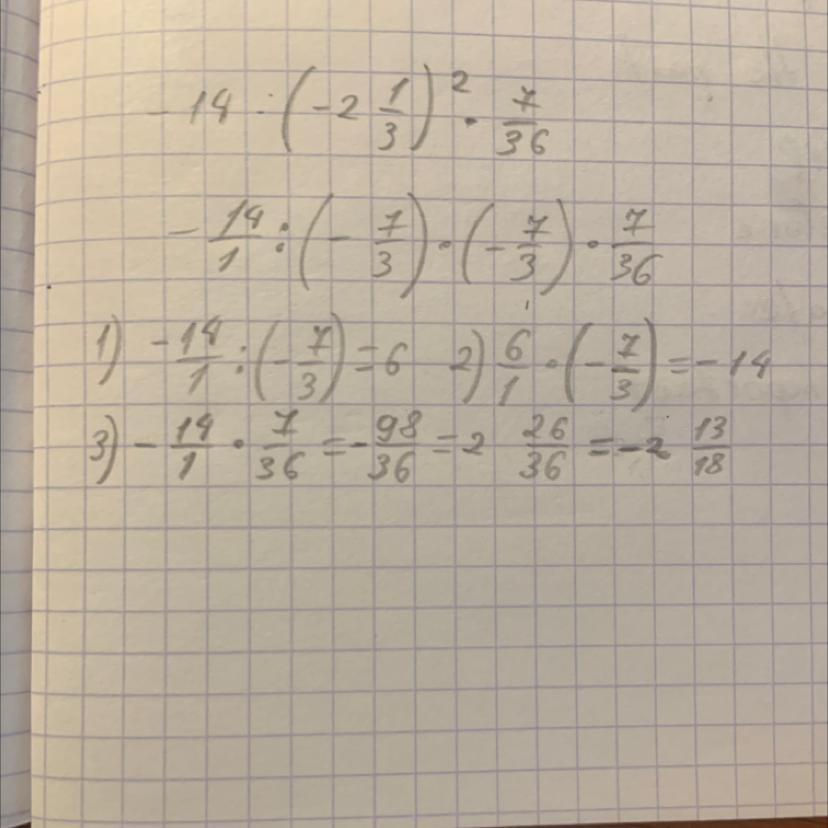 -14 : (-2 1/3)² · 7/36
- 14/1 : (- 7/3) · (- 7/3) · 7/36
1) - 14/1 : (- 7/3) = 6 2) 6/1 · (- 7/3) = -14
3) - 14/1 · 7/36 = - 98/36 = 2 26/36 = -2 13/18